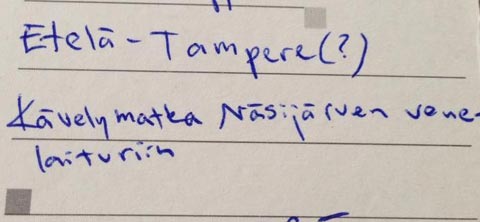 Etelä-Tampere(?)
Kävelymatka Näsijärven vene-
laituriin